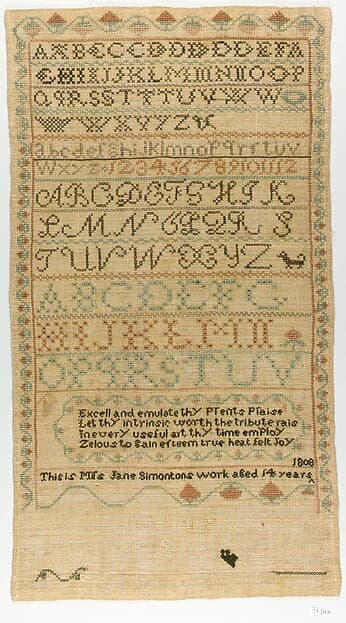 AABCCCDDDDDDEFA
GHIIJKLMIINIIOOP
QIRSSTTTUVWW
WXVYZ
abcdefghiJKlmnopqrrstuv
Wxyz 123456789101112
ABCDEFGHIK
LMNOPQRS
TUVWXYZ
ABCDEFG
HIJKLMII
OPQRSTUV
Excell and emulate thy Prents Plaise
Let thy intrinsic worth the tribute rais
In every useful art thy time employ
Zelous to gain esteem true heat felt Joy
1808
This is Miſs Jane Simontons work aged 14 years